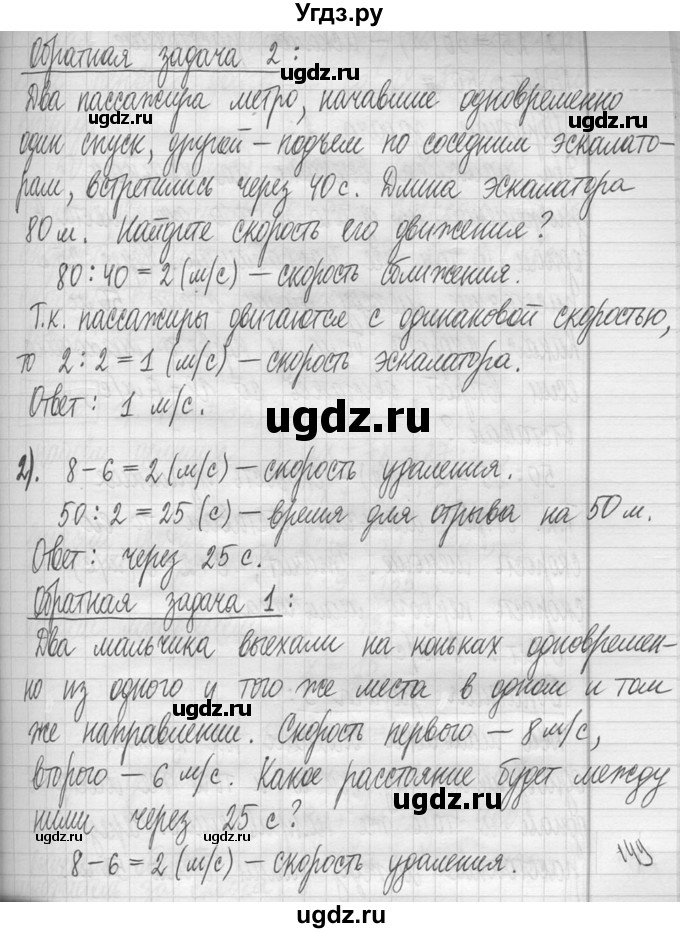 Угдз.ру
Обратная задача 2:
ugdz.ru
Два пассажира метро, начавшие одновременно
ugdz.ru ugdz.ru
один спуск, другой – подъем по соседним эскалато-
рам, встретились через 40 с. Длина эскалатора
ugdz.ru
80 м. Найдите скорость его движения?
80 : 40 = 2 (м/с) – скорость сближения.
Т.к. пассажиры двигаются с одинаковой скоростью,
то 2 : 2 = 1 (м/с) – скорость эскалатора.
Ответ: 1 м/с.
ugdz.ru
2). 8 – 6 = 2 (м/с) – скорость удаления.
50 : 2 = 25 (с) – время для отрыва на 50 м.
Ответ: через 25 с.
ugdz.ru
Обратная задача 1:
Два мальчика выехали на коньках одновремен-
но из одного и того же места в одном и том
ugdz.ru
же направлении. Скорость первого – 8 м/с,
второго – 6 м/с. Какое расстояние будет между
ugdz.ru
ними через 25 с?
ugdz.ru ugdz.ru
8 – 6 = 2 (м/с) – скорость удаления.
149
ugdz.ru